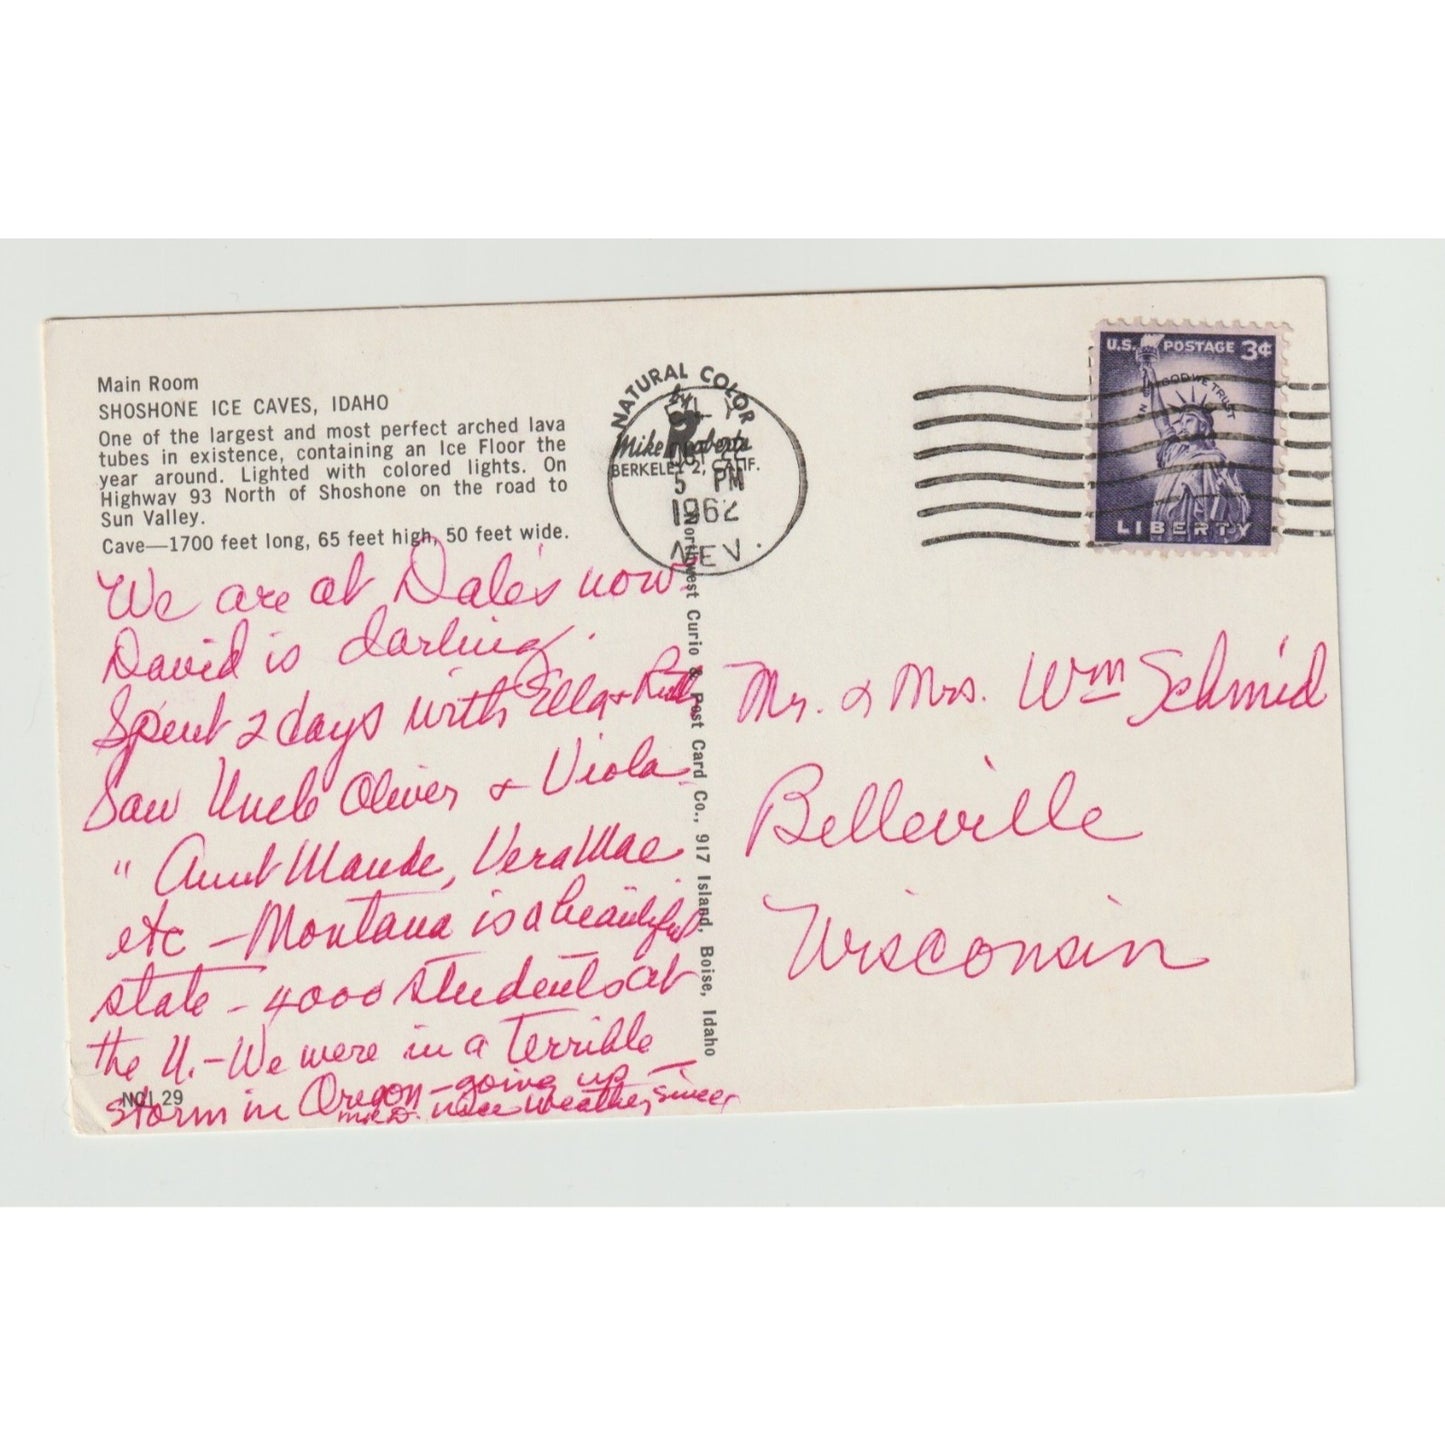 Main Room
SHOSHONE ICE CAVES, IDAHO
One of the largest and most perfect arched lava
tubes in existence, containing an Ice Floor the
year around. Lighted with colored lights. On
Highway 93 North of Shoshone on the road to
Sun Valley.
Cave—1700 feet long, 65 feet high, 50 feet wide.
We are at Dale's now
David is darling.
Spent 2 days with Ella &
Saw Uncle Oliver & Viola
" Aunt Maude, Vera Mae
etc – Montana is a beautiful
state – 4000 students at
the U. – We were in a terrible
storm in Oregon – going up –
nice weather since
NCI 29
NATURAL COLOR
by
Mike Roberts
BERKELEY 2, CALIF.
5 PM
1962
NEV.
Northwest Curio & Post Card Co., 917 Island, Boise, Idaho
U.S. POSTAGE 3¢
IN GOD WE TRUST
LIBERTY
Mr. & Mrs. Wm Schmid
Belleville
Wisconsin